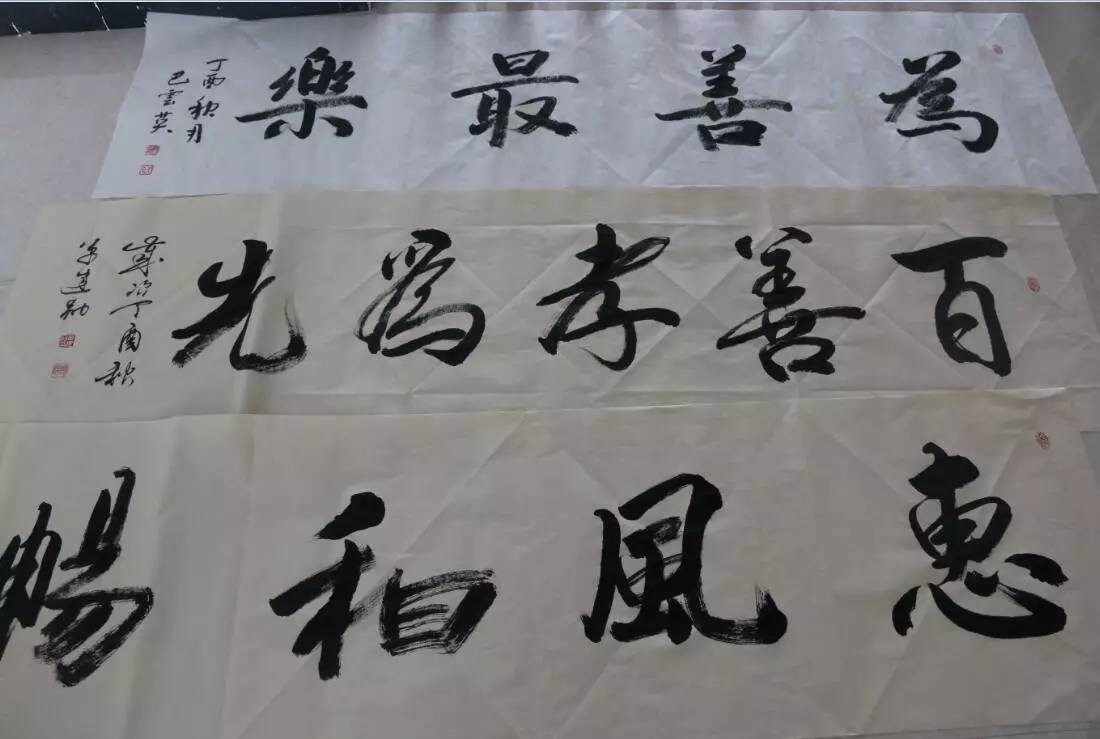 為善最樂
丁酉秋月
巴雲英
百善孝為先
歲次丁酉秋
惠風和暢